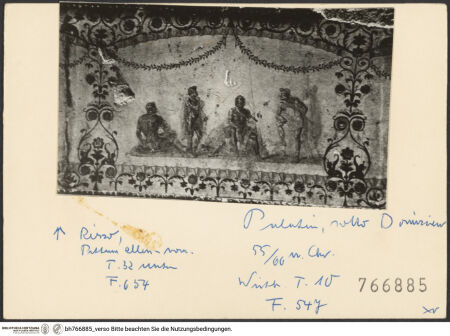 ↑ Rizzo,
Pitture ellen.-rom.
T. 32 unten
F. 654
Palatin, sotto Domizian
55/66 n. Chr.
Wirth T. 10
F. 547
766885
BIBLIOTHECA HERTZIANA
bh766885_verso Bitte beachten Sie die Nutzungsbedingungen.